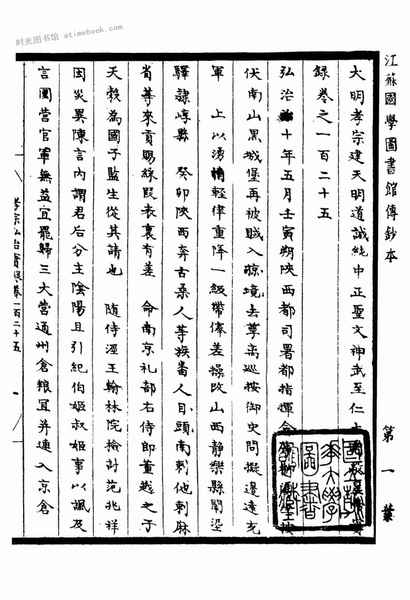 时光图书馆 atimebook.com
江蘇國學圖書館傳鈔本
第一葉
大明孝宗建天明道誠純中正聖文神武至仁大
錄卷之一百二十五
弘治十年五月壬寅朔陝西都司署都指揮僉
伏南山黑城堡再被賊入掠境去尋為巡按御史問擬邊遠充
軍上以湧情輕律重降一級帶俸差操改山西靜樂縣閘淫
驛隷崞縣癸卯陝西奔古桑人等族番人目頭南剌他剌麻
省等來貢賜綵段衣裏有差命南京禮部右侍郎董越之子
天敘為國子監生從其請也隨侍涇王翰林院檢討范兆祥
因災異陳言內謂君后分主陰陽且引紀伯姬叔姬事以諷及
言團營官軍無益宜罷歸三大營通州倉粮宜并運入京倉
孝宗弘治實錄卷一百二十五
一